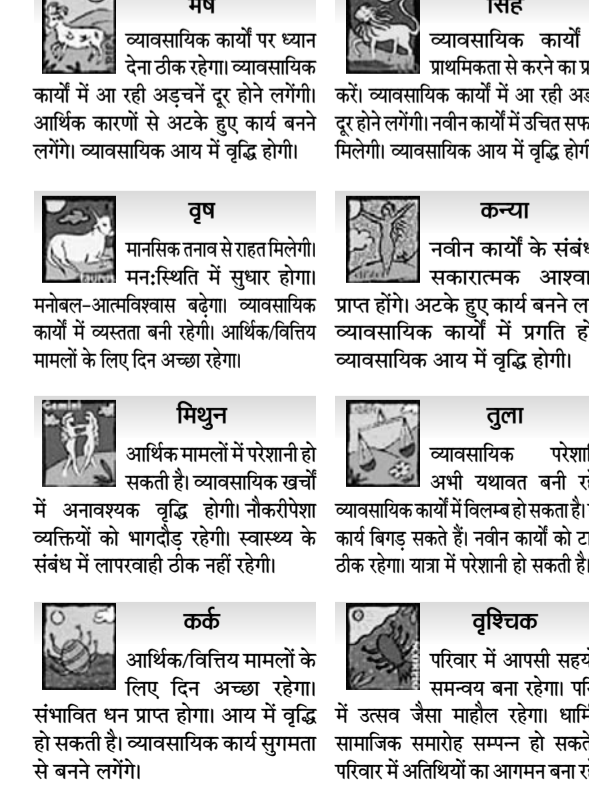 मेष
व्यावसायिक कार्यों पर ध्यान
देना ठीक रहेगा। व्यावसायिक
कार्यों में आ रही अड़चनें दूर होने लगेंगी।
आर्थिक कारणों से अटके हुए कार्य बनने
लगेंगे। व्यावसायिक आय में वृद्धि होगी।
वृष
मानसिक तनाव से राहत मिलेगी।
मन:स्थिति में सुधार होगा।
मनोबल-आत्मविश्वास बढ़ेगा। व्यावसायिक
कार्यों में व्यस्तता बनी रहेगी। आर्थिक/वित्तिय
मामलों के लिए दिन अच्छा रहेगा।
मिथुन
आर्थिक मामलों में परेशानी हो
सकती है। व्यावसायिक खर्चों
में अनावश्यक वृद्धि होगी। नौकरीपेशा
व्यक्तियों को भागदौड़ रहेगी। स्वास्थ्य के
संबंध में लापरवाही ठीक नहीं रहेगी।
कर्क
आर्थिक/वित्तिय मामलों के
लिए दिन अच्छा रहेगा।
संभावित धन प्राप्त होगा। आय में वृद्धि
हो सकती है। व्यावसायिक कार्य सुगमता
से बनने लगेंगे।
सिंह
व्यावसायिक कार्यों
प्राथमिकता से करने का
करें। व्यावसायिक कार्यों में आ रही
दूर होने लगेंगी। नवीन कार्यों में उचित
मिलेगी। व्यावसायिक आय में वृद्धि
कन्या
नवीन कार्यों के
सकारात्मक
प्राप्त होंगे। अटके हुए कार्य बनने
व्यावसायिक कार्यों में प्रगति
व्यावसायिक आय में वृद्धि होगी।
तुला
व्यावसायिक
अभी यथावत बनी
व्यावसायिक कार्यों में विलम्ब हो सकता है।
कार्य बिगड़ सकते हैं। नवीन कार्यों को
ठीक रहेगा। यात्रा में परेशानी हो सकती है।
वृश्चिक
परिवार में आपसी
समन्वय बना रहेगा।
में उत्सव जैसा माहौल रहेगा।
सामाजिक समारोह सम्पन्न हो
परिवार में अतिथियों का आगमन बना